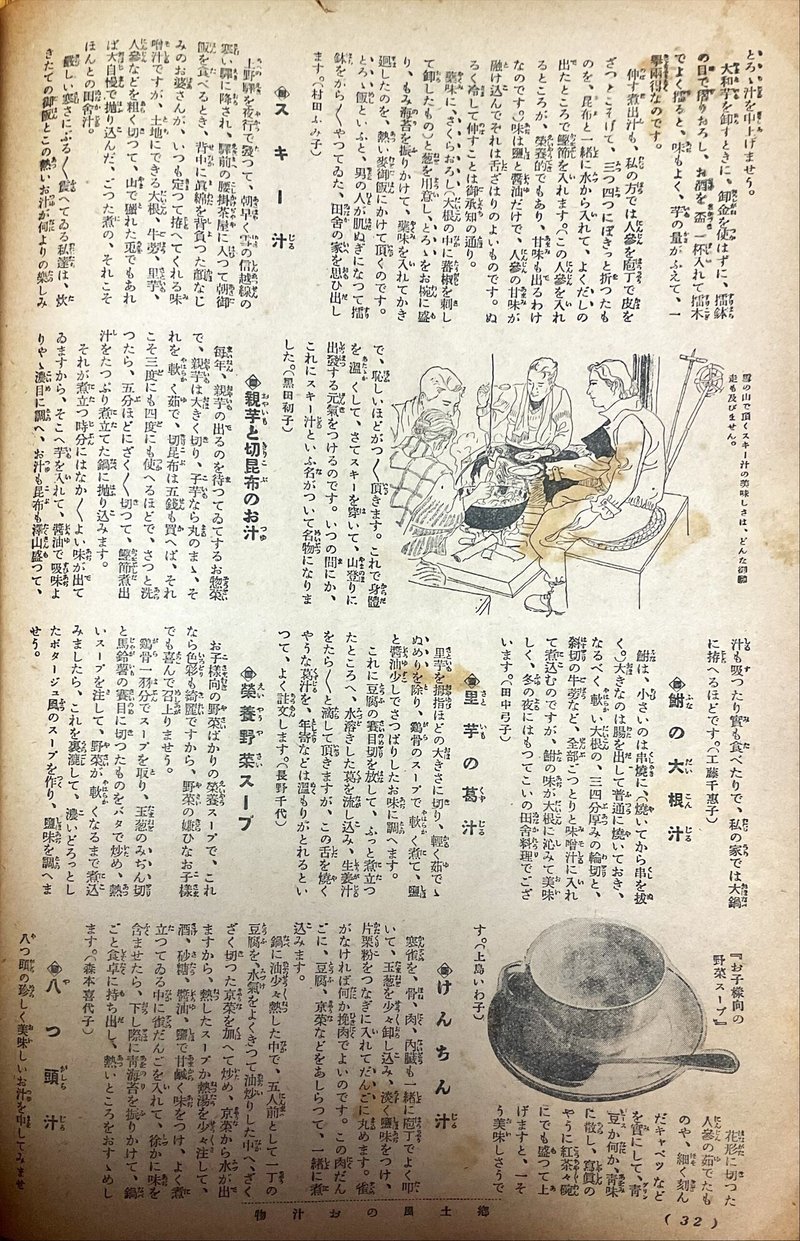 とろゝ汁を申上げませう。
大和芋を卸すときに、卸金を使はずに、擂鉢
の目で擂りおろし、お酒を盃一杯入れて擂木
でよく擂ると、味もよく、芋の量がふえて、一
擧兩得なのです。
伸す煮出汁も、私の方では人參を庖丁で皮を
ざつとこそげて、三つ四つにぽきつと折つたも
のを、昆布と一緒に水から入れて、よくだしの
出たところで鰹節を入れます。この人參を入れ
るところが、榮養的でもあり、甘味も出るわけ
なのです。味は鹽と醬油だけで、人參の甘味が
融け込んでそれは舌ざはりのよいものです。ぬ
るく冷して伸すことは御承知の通り。
藥味に、さくらおろし(大根の中に蕃椒を刺し
て卸したもの)と葱を用意し、とろゝをお椀に盛
り、もみ海苔を振りかけて、藥味を入れてかき
廻したのを、熱い麥御飯にかけて頂くのです。
とろゝ飯といふと、男の人が肌ぬぎになつて擂
鉢をがらがらやつてゐた、田舍の家を思ひ出し
ます。(村田ふみ子)
スキー汁
上野驛を夜行で發つて、朝早く雪の信越線の
寒い驛に降され、驛前の腰掛茶屋に入つて朝御
飯を食べるとき、背中に眞綿を背負つた顏なじ
みのお婆さんが、いつも定つて拵へてくれる味
噌汁ですが、土地にできる大根、牛蒡、里芋、
人參などを粗く切つて、山で獵れた兎でもあれ
ば大自慢で抛り込んだ、ごつた煮の、それこそ
ほんとの田舍汁。
嚴しい寒さにぶるぶる慄へてゐる私達は、炊
きたての御飯とこの熱いお汁が何よりの樂しみ
雪の山で頂くスキー汁の美味しさは、どんな御馳
走も及びません。
で、恥しいほどがつがつ頂きます。これで身體
を溫くして、さてスキーを穿いて、山登りに
出發する元氣をつけるのです。いつの間にか、
これにスキー汁といふ名がついて名物になりま
した。(黑田初子)
親芋と切昆布のお汁
每年、親芋の出るのを待つてゐてするお惣菜
で、親芋は大きく切り、子芋なら丸のまゝ、そ
れを軟く茹で、切昆布は五錢も買へば、それ
こそ三度にも四度にも使へるほどで、さつと洗
つたら、五分ほどにざくざく切つて、鰹節煮出
汁をたつぷり煮立てた鍋に抛り込みます。
それが煮立つ時分にはなかなかよい味が出て
ゐますから、そこへ芋を入れて、醬油で吸味よ
りやゝ濃目に調へ、お汁も昆布も澤山盛つて、
汁も吸つたり實も食べたりで、私の家では大鍋
に拵へるほどです。(工藤千惠子)
鮒の大根汁
鮒は、小さいのは串燒に、(燒いてから串を拔
く。)大きなのは腸を出して普通に燒いておき、
なるべく軟い大根の、三四分厚みの輪切と、
斜切の牛蒡など、全部ごつとりと味噌汁に入れ
て煮込むのですが、鮒の味が大根に沁みて美味
しく、冬の夜にはもつてこいの田舍料理でござ
います。(田中弓子)
里芋の葛汁
里芋を拇指ほどの大きさに切り、輕く茹でゝ
ぬめりを除り、鷄骨のスープで軟く煮て、鹽
と醬油少しでさつぱりしたお味に調へます。
これに豆腐の賽目切を放して、ふつと煮立つ
たところへ、水溶きした葛を流し込み、生姜汁
をたらたらと滴して頂きますが、この舌を燒く
やうな葛汁を、年寄などは溫もりがとれるとい
つて、よく註文します。(長野千代)
榮養野菜スープ
お子樣向の野菜ばかりの榮養スープで、これ
なら色彩も綺麗ですから、野菜の嫌ひなお子樣
でも喜んで召上りませう。
鷄骨一羽分でスープを取り、玉葱のみぢん切
と馬鈴薯の賽目に切つたものをバタで炒め、熱
いスープを注して、野菜が軟くなるまで煮込
みましたら、これを裏漉して、濃いどろつとし
たポタージュ風のスープを作り、鹽味を調へま
せう。
『お子樣向の
野菜スープ』
花形に切つた
人參の茹でたも
のや、細く刻ん
だキャベツなど
を實にして、靑
豆か何か、靑味
に散し、寫眞の
やうに紅茶々碗
にでも盛つて上
げますと、一そ
う美味しさうで
す。(上島いわ子)
けんちん汁
寒雀を、骨、肉、內臟も一緖に庖丁でよく叩
いて、玉葱を少々卸し込み、淡く鹽味をつけ、
片栗粉をつなぎに入れてだんごに丸めます。雀
がなければ何か挽肉でよいのです。この肉だん
ごに、豆腐、京菜などをあしらつて、一緖に煮
込みます。
鍋に油少々熱した中で、五人前として一丁の
豆腐を、水氣をよくきつて油炒りした中へ、ざく
ざく切つた京菜を加へて炒め、京菜から水が出
ますから、熱したスープか熱湯を少々注して、
酒、砂糖、醬油、鹽で甘鹹く味をつけ、よく煮
立つてゐる中に雀だんごを入れて、徐かに味を
含ませたら、下し際に靑海苔を振りかけて、鍋
ごと食卓に持ち出し、熱いところをおすゝめし
ます。(森本喜代子)
八つ頭汁
八つ頭の珍しく美味しいお汁を申してみませ
鄕土風のお汁物
(32)